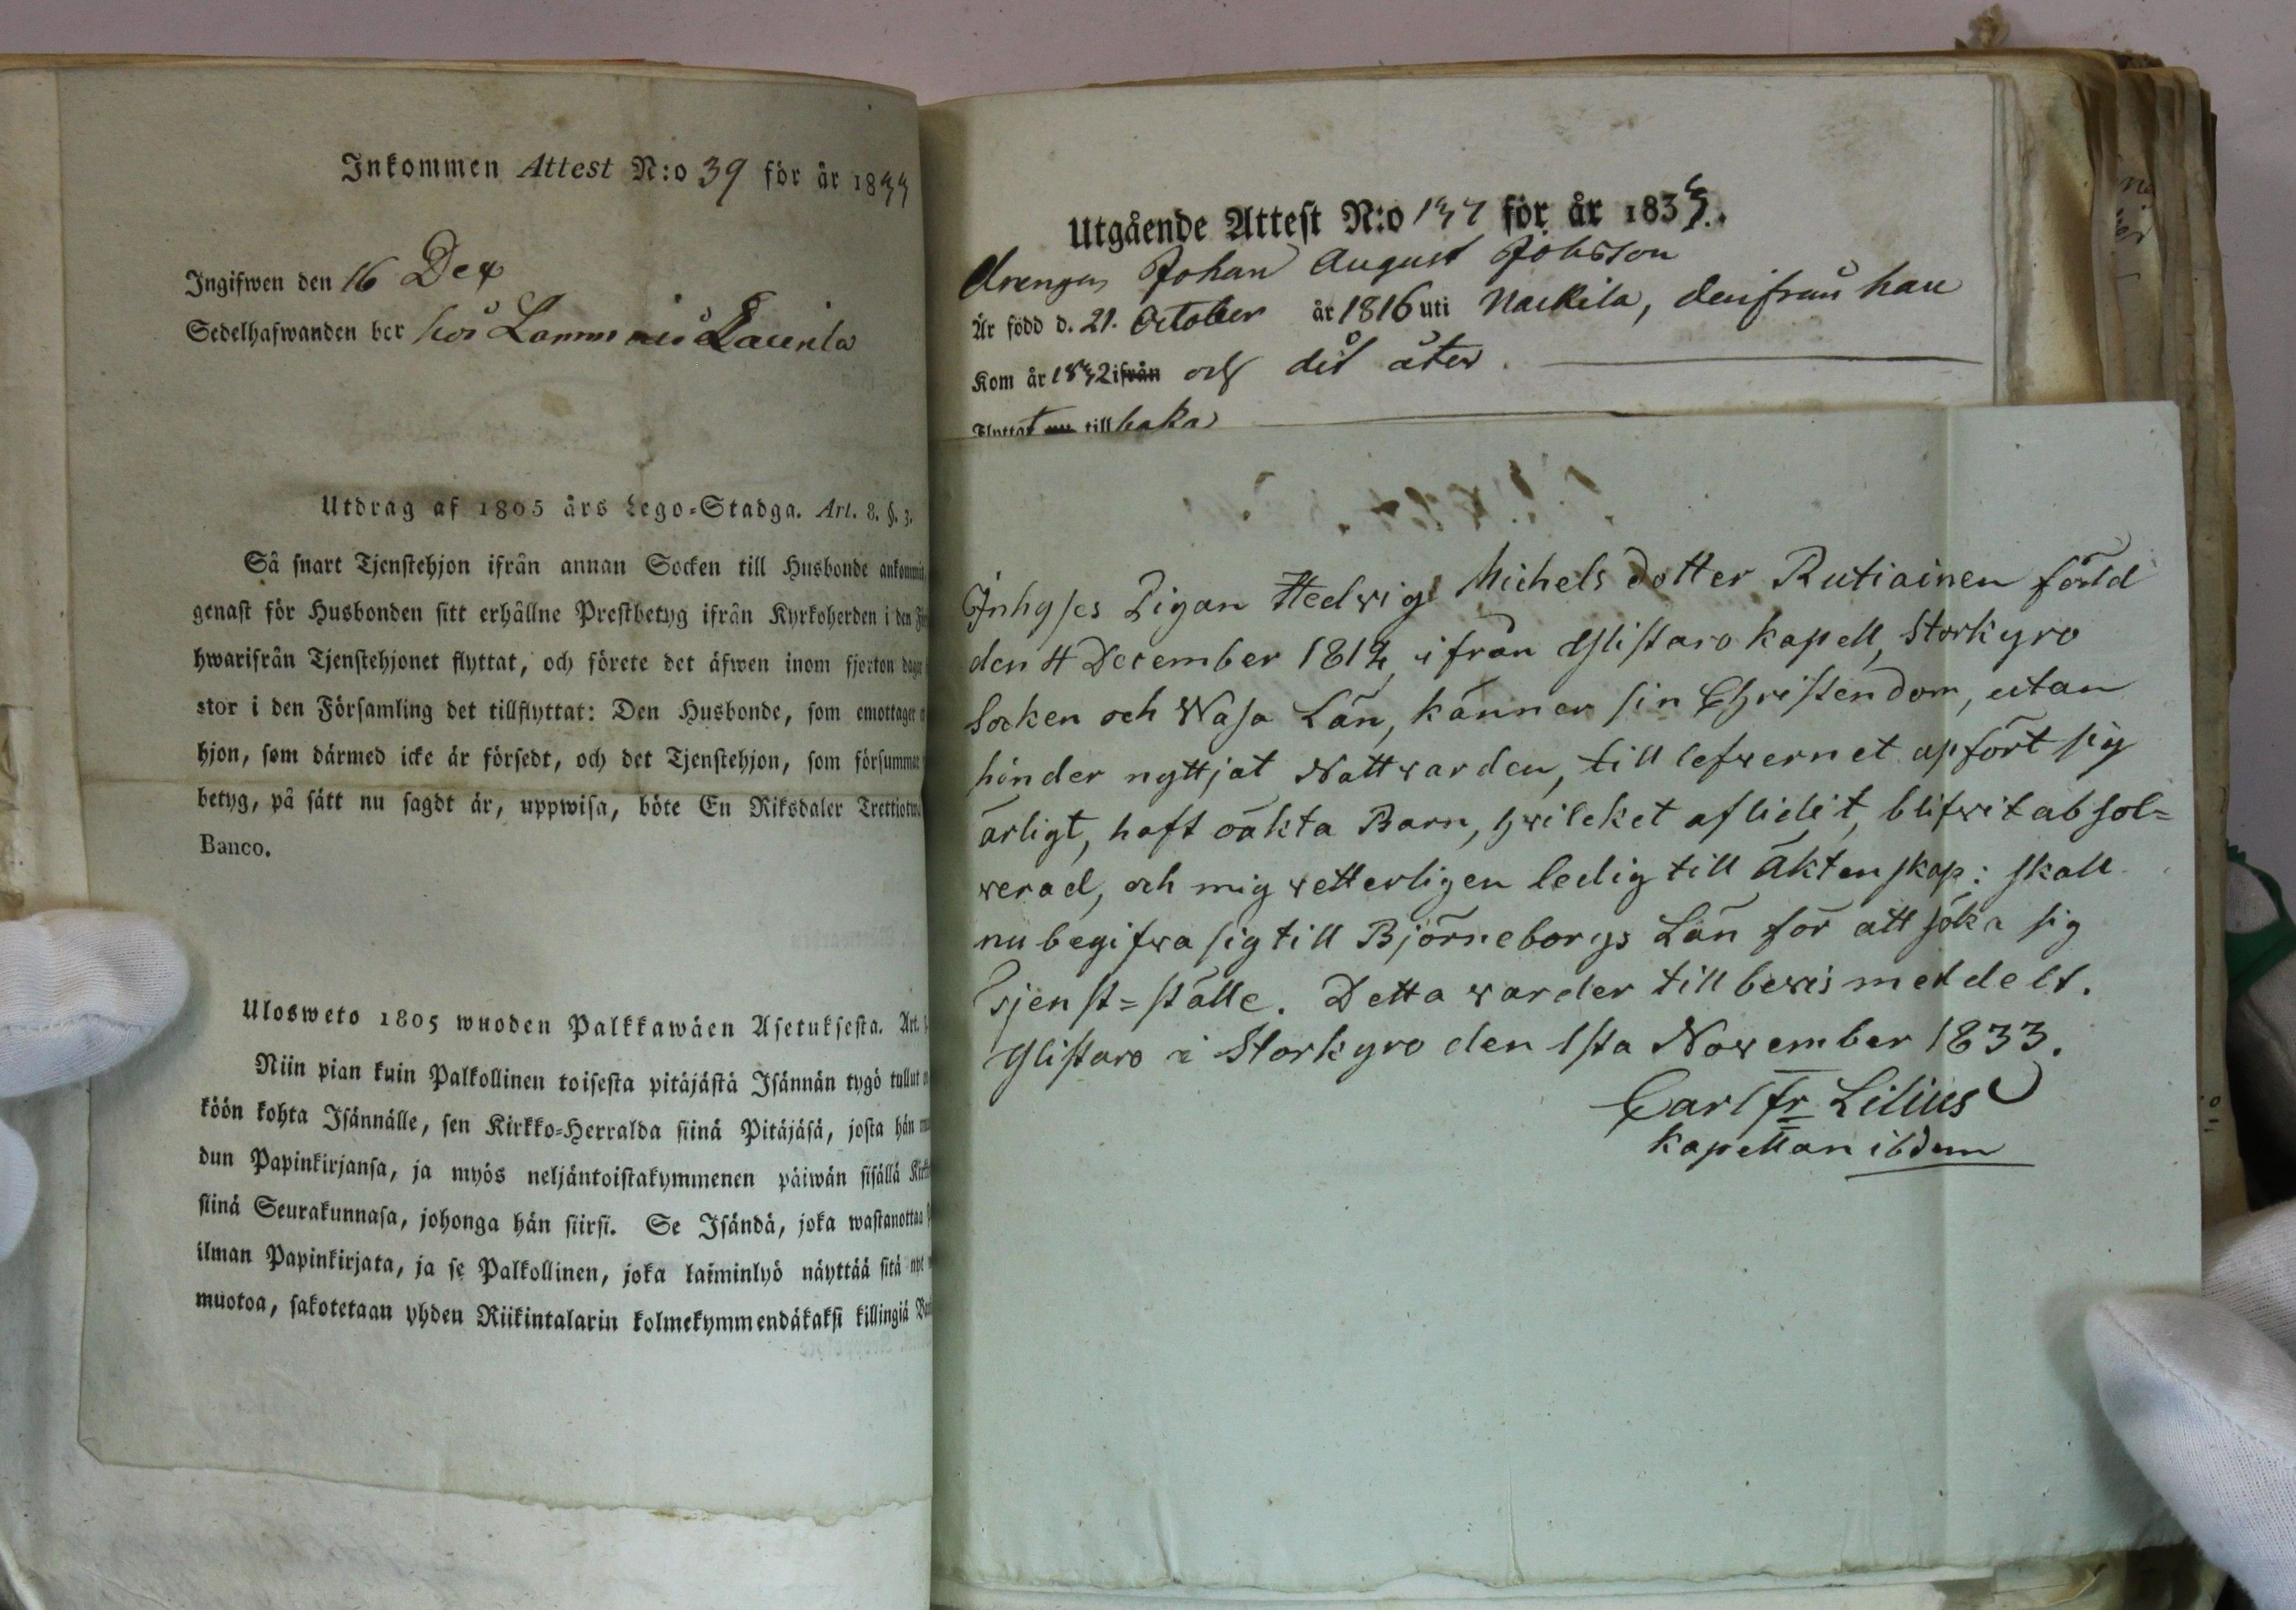 Inkommen Attest N:o 39 för år 1833
Ingifwen den 16 Dec
Sedelhafwanden ber hos Lammais Laurila
Utdrag af 1805 års Lego-Stadga. Art. 8. §. 3.
Så snart Tjenstehjon ifrån annan Socken till Husbonde ankommit,
genast för Husbonden sitt erhållne Prestbetyg ifrån Kyrkoherden i den
hwarifrån Tjenstehjonet flyttat, och förete det äfwen inom fjorton dagar
stor i den Församling det tillflyttat: Den Husbonde, som emottager
hjon, som därmed icke är försedt, och det Tjenstehjon, som försummar
betyg, på sätt nu sagdt är, uppwisa, böte En Riksdaler
Banco.
Ulosweto 1805 wuoden Palkkawäen Asetuksesta. Art.
Niin pian kuin Palkollinen toisesta pitäjästä Isännän tygö tullut
köön kohta Isännälle, sen Kirkko-Herralda siinä Pitäjäsä, josta hän
dun Papinkirjansa, ja myös neljäntoistakymmenen päiwän sisällä
siinä Seurakunnasa, johonga hän siirsi. Se Isändä, joka wastanottaa
ilman Papinkirjata, ja se Palkollinen, joka laiminlyö näyttää sitä nyt
muotoa, sakotetaan yhden Riikintalarin kolmekymmendäkaksi killingiä
Utgående Attest N:o 137 för år 1833.
Drengen Johan August Jobsson
Är född d. 21. October år 1816 uti Nackila, derifrån han
Kom år 1832 ifrån och dit åter.
Flyttat nu till baka
Inhyses Pigan Hedwig Michels dotter Rutiainen född
den 4 December 1812, ifrån Ylistaro kapell, Storkyro
Socken och Wasa Län, känner sin Christendom, utan
hinder nyttjat Nattwarden, till lefwernet upfört sig
ärligt, haft oäkta Barn, hwilcket aflidit, blifwit absol=
werad, och mig wetterligen ledig till Äktenskap: skall
nu begifwa sig till Björneborgs Län för att söka sig
Tjenst=ställe. Detta warder till bewis meddelt.
Ylistaro i Storkyro den 1sta November 1833.
Carl Fr Lilius
Kapellan ibdem